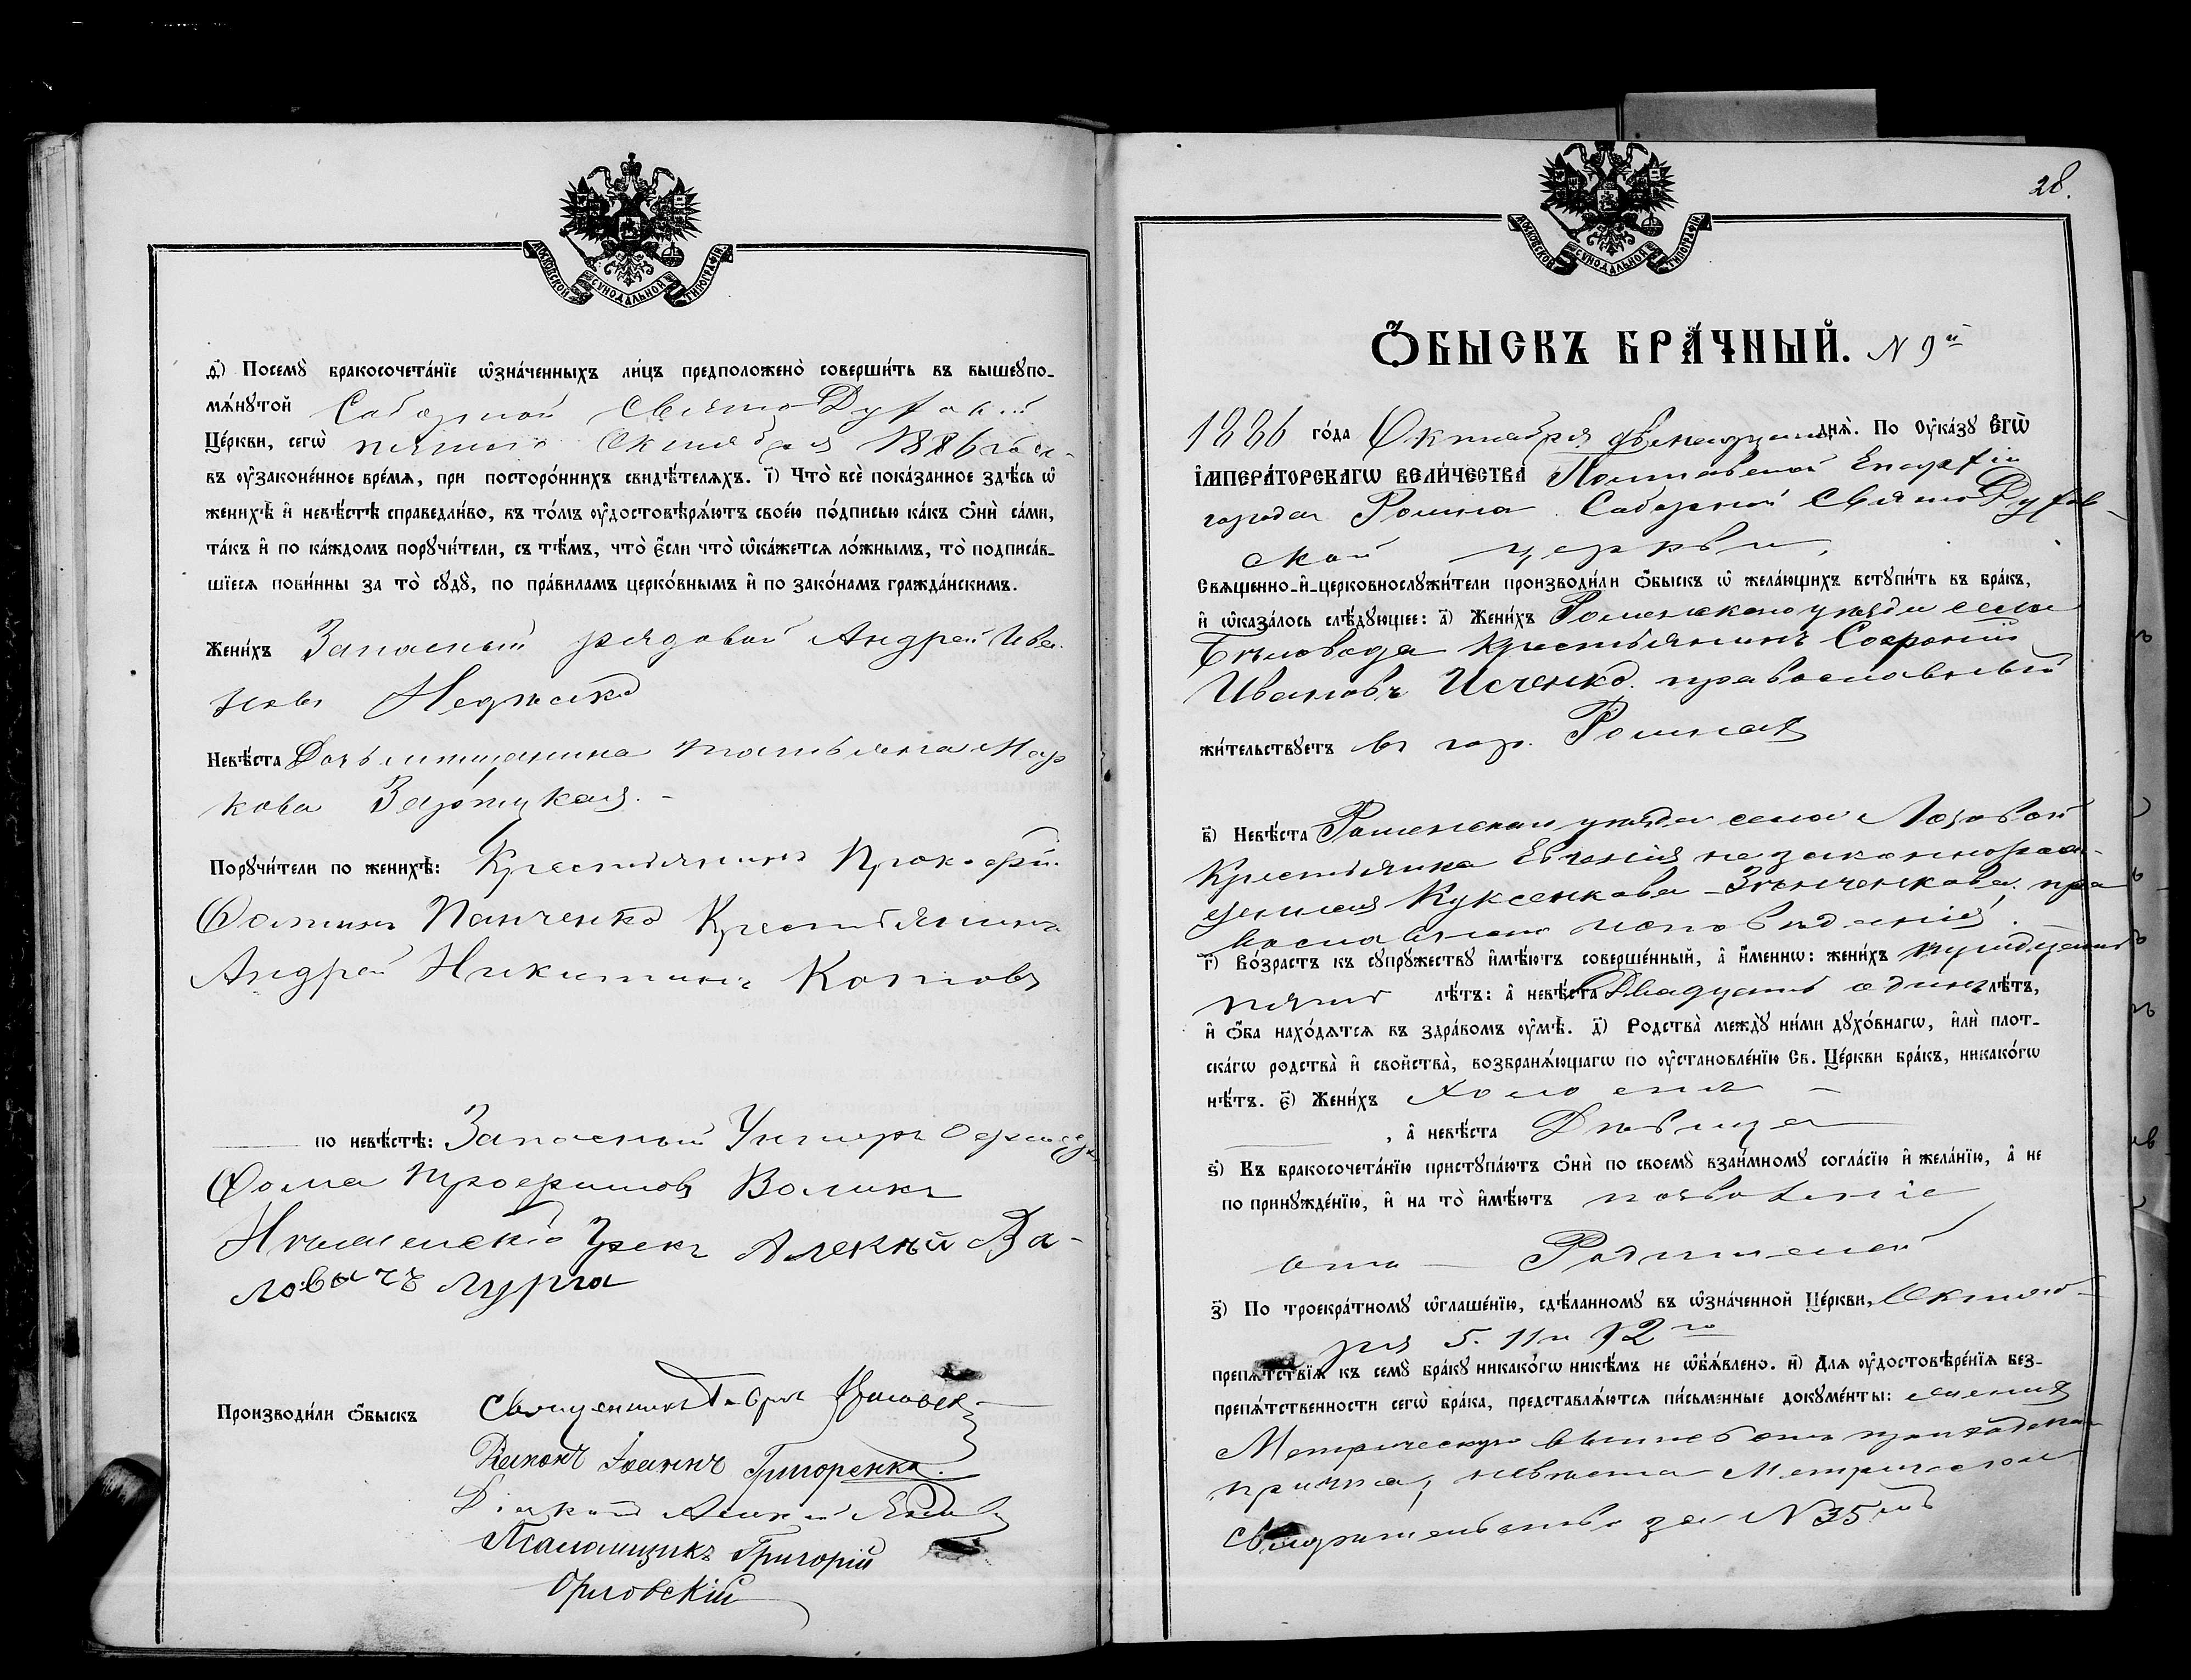 МОСКОВСКОЙ СѴНОДАЛЬНОЙ ТИПОГРАФІИ
ѳ҃) Посемꙋ̀ бракосочета́нїе ѡ҆зна́ченныхъ ли́цъ предположено̀ соверши́ть въ вышеꙋпо-
мѧ́нꙋтой Соборной Свято Духовской
Це́ркви, сегѡ̀ пятаго Октября 1886 года
въ ᲂу҆законе́нное вре́мѧ, при посторо́ннихъ свидѣ́телѧхъ. і҃) Что̀ всѐ пока́занное здѣ́сь ѡ҆
женихѣ̀ и҆ невѣ́стѣ справедли́во, въ то́мъ ᲂу҆достовѣрѧ́ютъ свое́ю по́дписью ка́къ ѻ҆нѝ са́ми,
та́къ и҆ по ка́ждомъ порꙋчи́тели, съ тѣ́мъ, что̀ є҆́сли что̀ ѡ҆ка́жется ло́жнымъ, то̀ подписа́в-
шїесѧ пови́нны за то̀ сꙋдꙋ̀, по пра́виламъ церко́внымъ и҆ по зако́намъ гражда́нскимъ.
Жени́хъ Запасный рядовой Андрей Ива-
новъ
Невѣ́ста Дочь мещанина Татьяна Мар
кова
Порꙋчи́тели по женихѣ̀: Крестьянинъ Прокофій
Фоминъ Панченко Крестьянинъ
Андрей Никитинъ Котовъ
по невѣ́стѣ: Запасный Унтеръ Офицеръ
Фома Трофимовъ Воликъ
Нѣжинскій Грекъ Алексѣй
Производи́ли ѻ҆́быскъ Священникъ
Діаконъ Іоаннъ Григоренко
Псаломщикъ Григорій
Орловскій
28.
МОСКОВСКОЙ СѴНОДАЛЬНОЙ ТИПОГРАФІИ
Ѻ҆́БЫСКЪ БРА́ЧНЫЙ. N 9й
1886 го́да Октября двенадцатаго днѧ̀. По Оу҆ка́зꙋ Є҆ГѠ̀
І҆МПЕРА́ТОРСКАГѠ ВЕЛИ́ЧЕСТВА Полтавской Епархіи
города Ромна Соборной Свято Духов-
ской церкви,
Свѧщенно-и҆-церковнослꙋжи́тели производи́ли ѻ҆́быскъ ѡ҆ жела́ющихъ встꙋпи́ть въ бра́къ,
и҆ ѡ҆каза́лось слѣ́дꙋющее: а҃) Жени́хъ Роменскаго уѣзда села
Бѣловода крестьянинъ Софроній
Ивановъ Исченко православный
жи́тельствꙋетъ въ гор. Ромнахъ
в҃) Невѣ́ста Роменскаго уѣзда села Лозовой
Крестьянка Евгенія незаконнорож-
денная Куксенкова-Зѣнченкова, пра
вославнаго исповѣданія.
г҃) Во́зрастъ къ сꙋпрꙋ́жествꙋ и҆мѣ́ютъ соверше́нный, а҆ и҆́меннѡ: жени́хъ тридцать
пять лѣ́тъ: а҆ невѣ́ста Двадцать одинъ лѣ́тъ,
и҆ ѻ҆́ба нахо́дѧтсѧ въ здра́вомъ ᲂу҆мѣ̀. д҃) Родства̀ междꙋ̀ ни́ми дꙋхо́внагѡ, и҆лѝ плот-
ска́гѡ родства̀ и҆ свойства̀, возбранѧ́ющагѡ по ᲂу҆становле́нїю Св. Це́ркви бра́къ, никако́гѡ
нѣ́тъ. є҃) Жени́хъ холостъ
, а҆ невѣ́ста Дѣвица
ѕ҃) Къ бракосочета́нїю пристꙋпа́ютъ ѻ҆нѝ по своемꙋ̀ взаи́мномꙋ согла́сїю и҆ жела́нїю, а҆ не
по принꙋжде́нїю, и҆ на то̀ и҆мѣ́ютъ позволеніе
отъ Родителей
з҃) По троекра́тномꙋ ѡ҆глаше́нїю, сдѣ́ланномꙋ въ ѡ҆зна́ченной Це́ркви, Октяб-
ря 5. 11 и 12го
препѧ́тствїѧ къ семꙋ̀ бра́кꙋ никако́гѡ никѣ́мъ не ѡ҆б̾ѧ́влено. и҃) Длѧ ᲂу҆достовѣре́нїѧ без-
препѧ́тственности сегѡ̀ бра́ка, представлѧ́ютсѧ пи́сьменные докꙋме́нты: жениха
Метрическую выпись отъ приходскаго
причта, невѣста Метрическое
свидѣтельство за N 35мъ